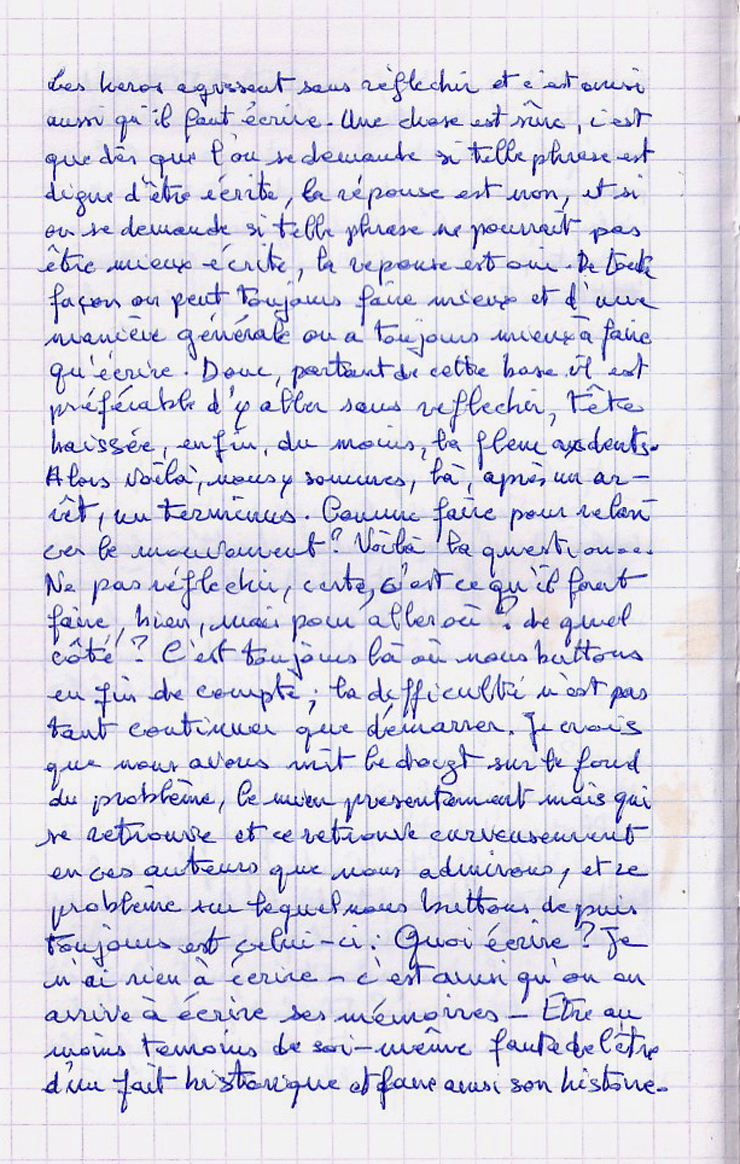 Les heros agissent sans réflechir et c'est ainsi
aussi qu'il faut écrire. Une chose est sûre, c'est
que dès que l'on se demande si telle phrase est
digne d'être écrite, la réponse est non, et si
on se demande si telle phrase ne pourrait pas
être mieux écrite, la reponse est oui. De toute
façon on peut toujours faire mieux et d'une
manière générale on a toujours mieux à faire
qu'écrire. Donc, partant de cette base il est
préférable d'y aller sans reflechir, tête
baissée, enfin, du moins, la plume aux dents.
Alors voilà, nous y sommes, là, après un ar-
rêt, un terminus. Comme faire pour relan
cer le mouvement? Voilà la question...
Ne pas réflechir, certe, c'est ce qu'il faut
faire, bien, mais pour aller où? de quel
côté? C'est toujours là où nous buttons
en fin de compte; la difficulté n'est pas
tant continuer que démarrer. Je crois
que nous avons mit le doigt sur le fond
du problème, le mien presentement mais qui
se retrouve et ce retrouve curieusement
en ces auteurs que nous admirons, et ce
problème sur lequel nous buttons depuis
toujours est celui-ci: Quoi écrire? Je
n'ai rien à écrire - c'est ainsi qu'on en
arrive à écrire ses mémoires - Etre au
moins temoins de soi-même faute de l'être
d'un fait historique et faire ainsi son histoire.